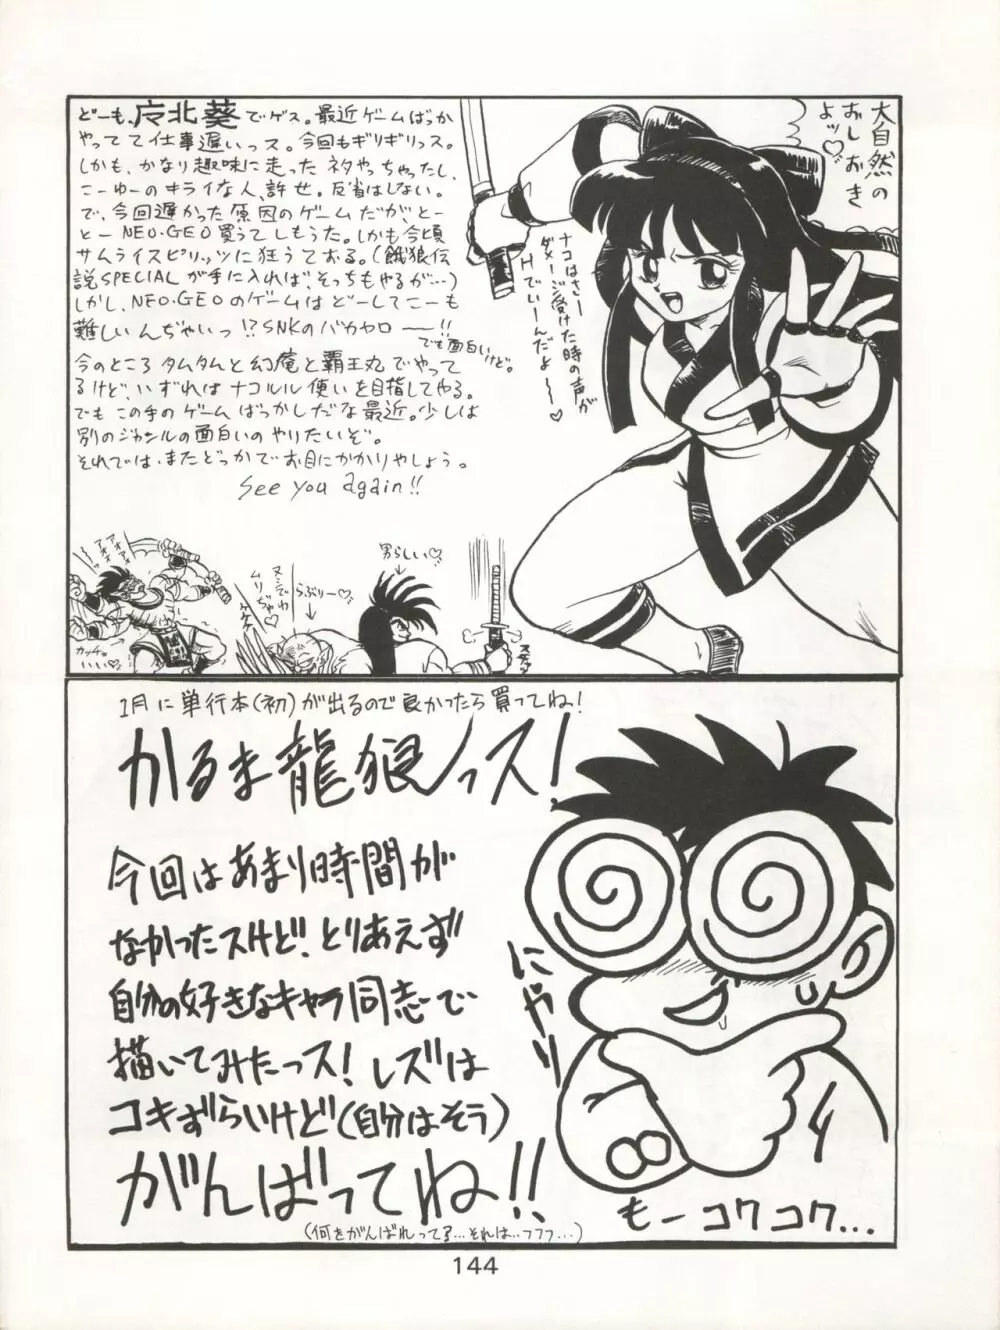 どーも、片北葵でゲス。最近ゲームばっか
やってて仕事遅いっス。今回もギリギリっス。
しかも、かなり趣味に走ったネタやっちゃったし、
こーゆーのキライな人、許せ。反省はしない。
で、今回遅かった原因のゲームだが、とー
とーNEO・GEO買うてしもうた。しかも今頃
サムライスピリッツに狂うておる。(餓狼伝
説SPECIALが手に入れば、そっちもやるが…)
しかし、NEO・GEOのゲームはどーしてこーも
難しいんぢゃいっ!?SNKのバカヤロ――!!
でも面白いけど。
今のところタムタムと幻庵と覇王丸でやって
るけど、いずれはナコルル使いを目指してやる。
でもこの手のゲームばっかしだな最近。少しは
別のジャンルの面白いのやりたいぞ。
それでは、またどっかでお目にかかりやしょう。
See you again!!
大自然の
おしおき
よッ♡
ナコはさー
ダメージ受けた時の声が
Hでいーんだよ〜〜♡
アオアオ
カッチョ
いい♡
ヌシでわ
ムリぢゃ♡
ケケケ
らぶりー♡
男らしい♡
1月に単行本(初)が出るので良かったら買ってね!
かるま龍狼っス!
今回はあまり時間が
なかったスけど、とりあえず
自分の好きなキャラ同志で
描いてみたっス!レズは
コキずらいけど(自分はそう)
がんばってね!!
(何をがんばれって?…それは…フフフ…)
にやり
もーコワコワ…
144